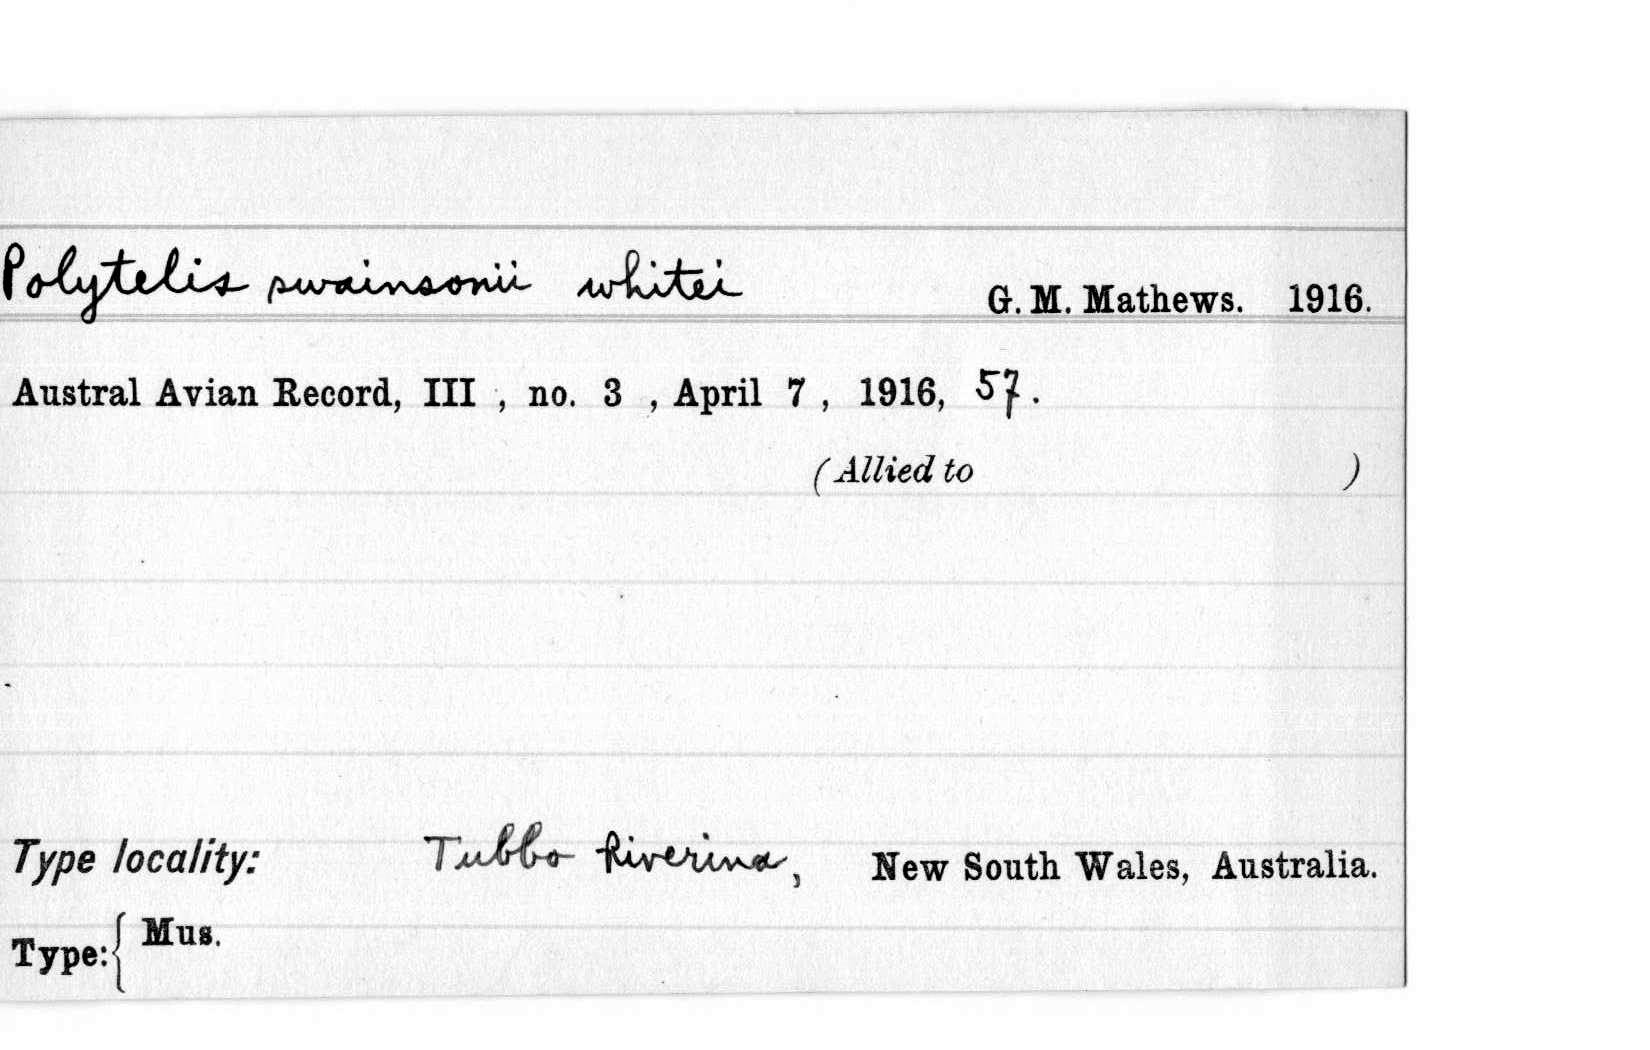 Polytelis swainsonii whitei G. M. Mathews. 1916.
Austral Avian Record, III , no. 3 , April 7 , 1916, 57.
(Allied to )
Type locality: Tubbo Riverina, New South Wales, Australia.
Type: { Mus.